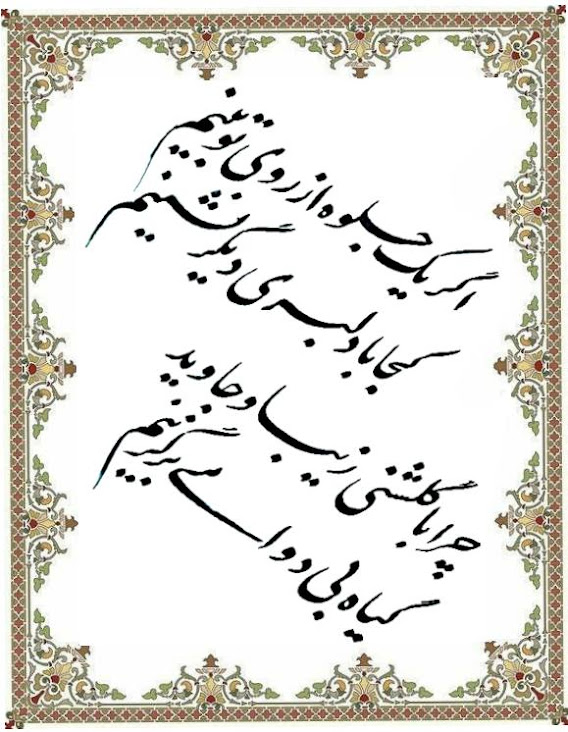 اگر یک جلوه از روی تو بینیم
کجا با دلبری دیگر نشینیم
چرا با گلشنی زیبا و جاوید
گیاه بی دوامی برگزینیم